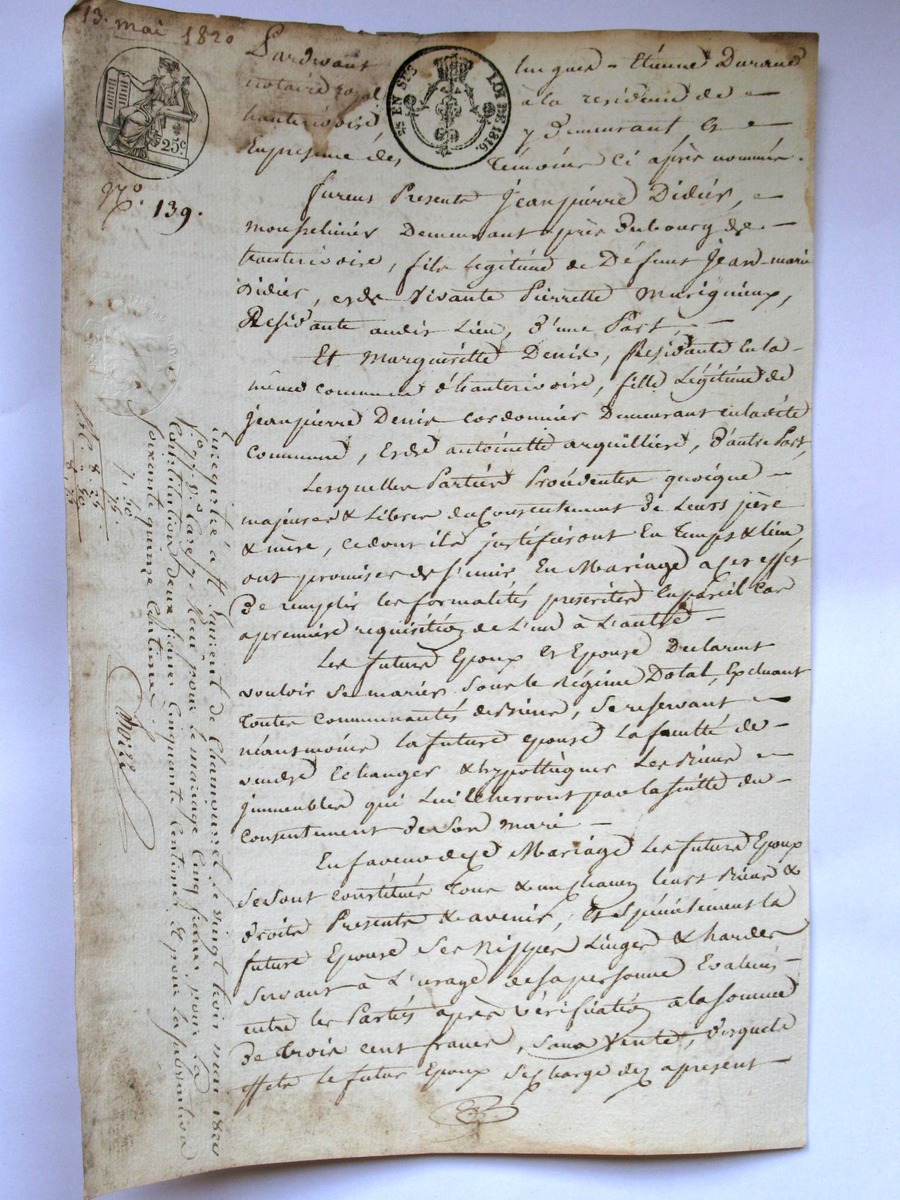 13. mai 1820
25 c
EN SUS
LOI DE 1816.
N.º 139.
Pardevant Jacques-Etienne Durand
notaire royal à la residence de
hauterivoire y demeurant, et
En presence des Temoins ci après nommés.
furent Presents Jeanpierre Didier,
mousselinier Demeurant près Dubourg de
hauterivoire, fils Legitime de Défunt Jean-marie
Didier, et de vivante Pierrette Murigneux,
Residante audit Lieu, D'une Part,
Et Margueritte Denis, Residante en la
même commune d'hauterivoire, fille Légitime de
Jeanpierre Denis cordonnier Demeurant en ladite
Commune, et de antoinette arquilliere, D'autre Part,
Lesquelles Parties Procédentes quoique
majeures & Libres du Consentement de Leurs père
& mère, ce dont ils justifieront En Temps & lieu,
ont promises de s'unir En Mariage a cet effet
De remplir les formalités prescrites En pareil Cas
a première requisition de L'un à L'autre
Les futurs Epoux et Epouse Declarent
vouloir se marier sous le Régime Dotal, Excluant
Toutes communautés de Biens, se reservant
néantmoins la future épouse la faculté de
vendre Echanger & hypothéquer Les Biens
jmmeubles qui Lui Echerront par la suitte du
Consentement de Son mari
En faveur de ce Mariage Les futurs Epoux
se sont constitués Tous & un chacun leurs Biens &
droits Presents & avenir, Et Specialement la
future Epouse Ses Nippes Linges & hardes
Servant à L'usage de sa personne Evalués
entre les Parties après vérification a la somme
De trois cent francs, sans Vente, Desquels
effets le futur Epoux se charge dez apresent
Enregistré à St Laurent de Chamousset Le vingt trois mai 1820
f.o Reçu pour le mariage Cinq francs pour la
Constitution deux francs Cinquante Centimes Et pour la subvention
soixante quinze Centimes